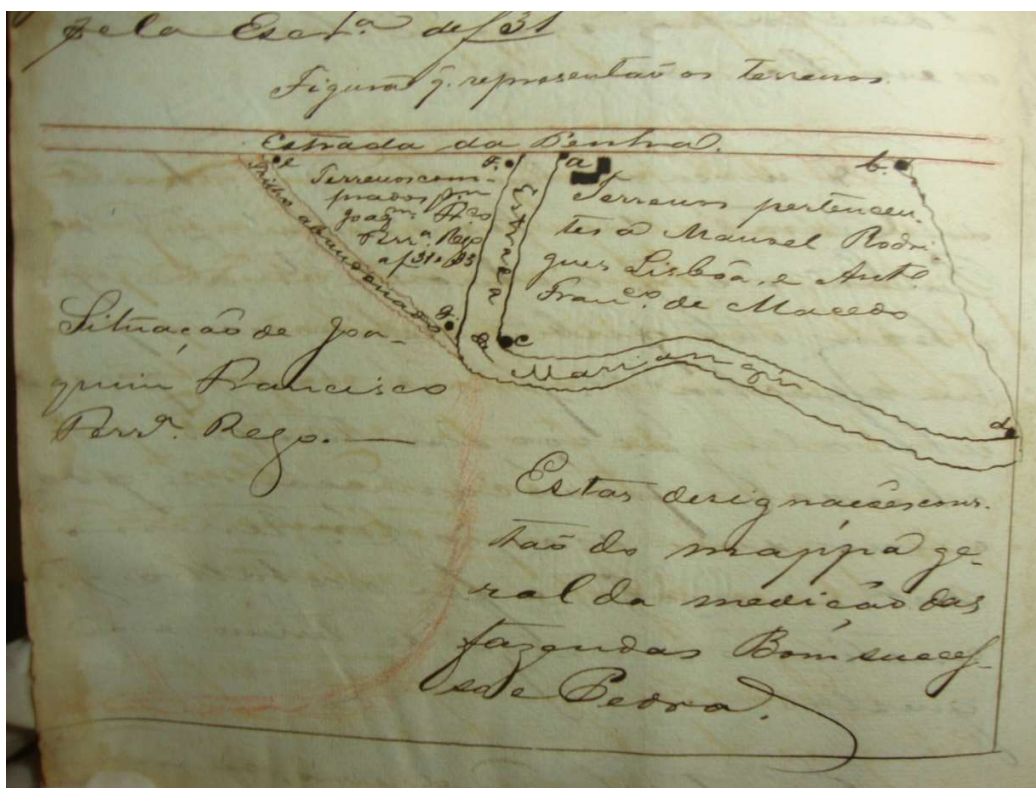 pela Escr.ª de f 31
Figura q. representaõ os terrenos.
Estrada da Penha.
e
f.
a
b.
Trilho abandonado
Terrenos com-
prados por
Joaq.m Fr.co
Ferr.ª Rego
a f 31
Estrada
Terrenos pertencen-
tes a Manoel Rodri-
gues Lisbôa, e Ant.º
Fran.co de Macedo
g.
c
de
Mariangú
d
Situação de Joa-
quim Francisco
Ferr.ª Rego.
Estas designaçoês cons-
taõ do mappa ge-
ral da medição das
fazendas Bomsuces-
so e Pedra.